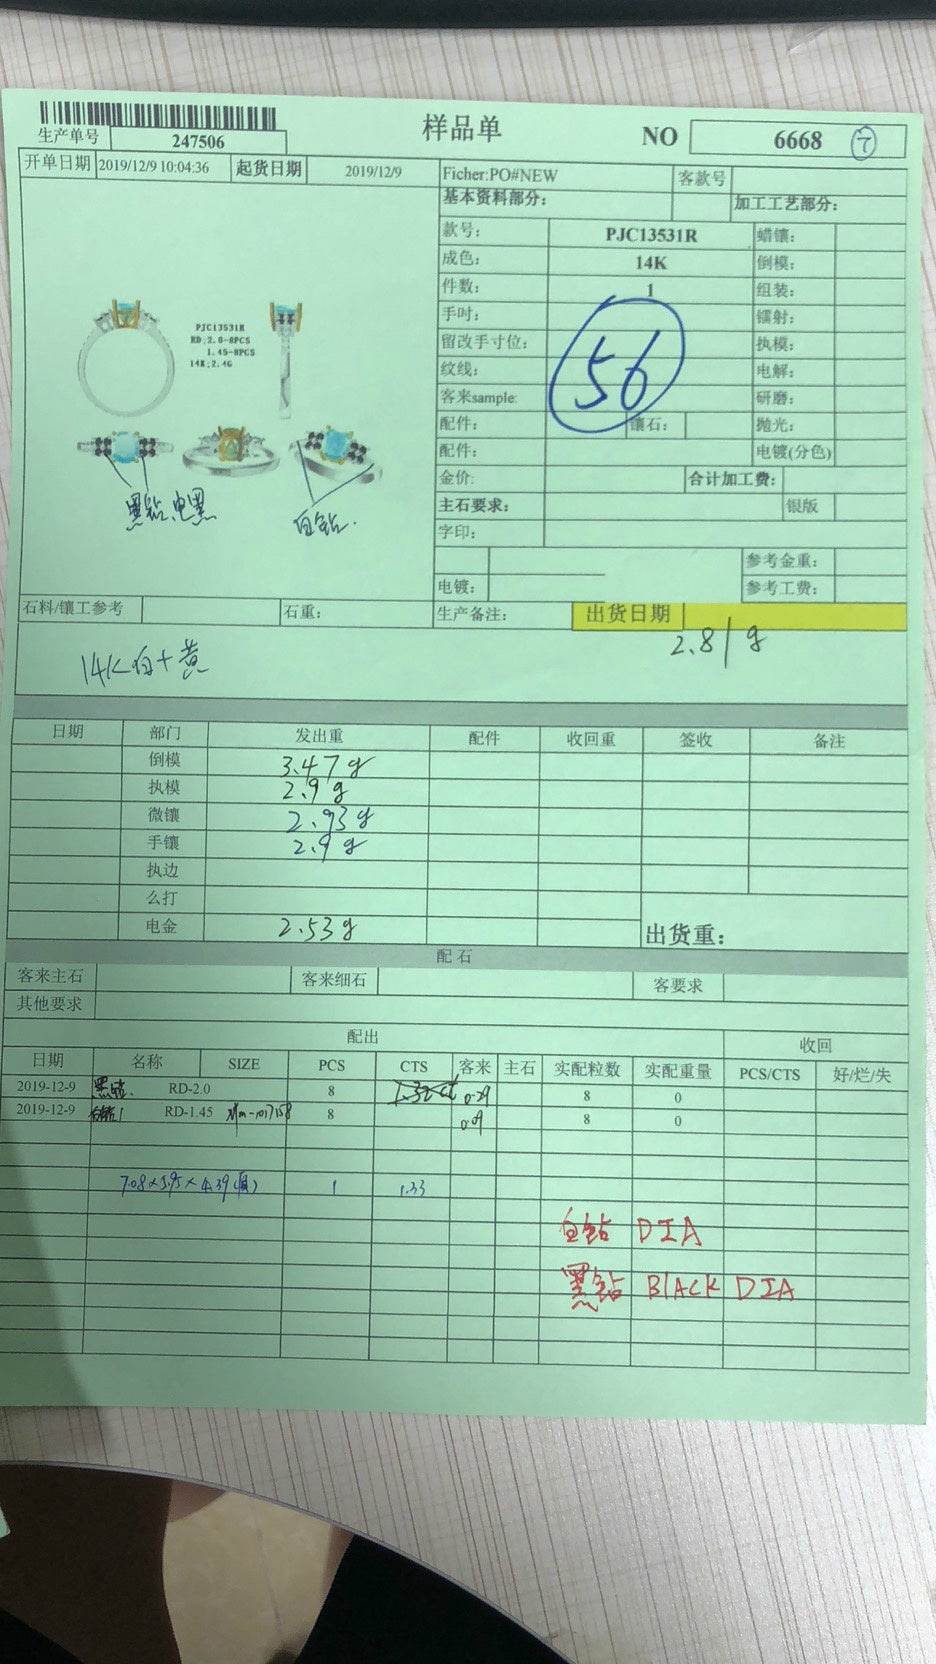 样品单
生产单号 247506 NO 6668 7
开单日期 2019/12/9 10:04:36 起货日期 2019/12/9 Ficher:PO#NEW 客款号
基本资料部分: 加工工艺部分:
款号: PJC13531R 蜡镶:
成色: 14K 倒模:
件数: 1 组装:
手吋: 镭射:
留改手寸位: 执模:
纹线: 电解:
客来sample: 研磨:
56
配件: 镶石: 抛光:
配件: 电镀(分色)
金价: 合计加工费:
主石要求: 银版
字印:
参考金重:
电镀: 参考工费:
PJC13531R
RD:2.0-8PCS
1.45-8PCS
14K:2.4G
黑钻,电黑 白钻.
石料/镶工参考 石重: 生产备注: 出货日期
2.81g
14K白+黄
日期 部门 发出重 配件 收回重 签收 备注
倒模 3.47g
执模 2.9g
微镶 2.93g
手镶 2.9g
执边
么打
电金 2.53g 出货重:
配石
客来主石 客来细石 客要求
其他要求
配出 收回
日期 名称 SIZE PCS CTS 客来 主石 实配粒数 实配重量 PCS/CTS 好/烂/失
2019-12-9 黑钻. RD-2.0 8 0.29 8 0
2019-12-9 白钻 RD-1.45 8 0.09 8 0
7.08×5.95×4.39 1 1.33
白钻 DIA
黑钻 BLACK DIA